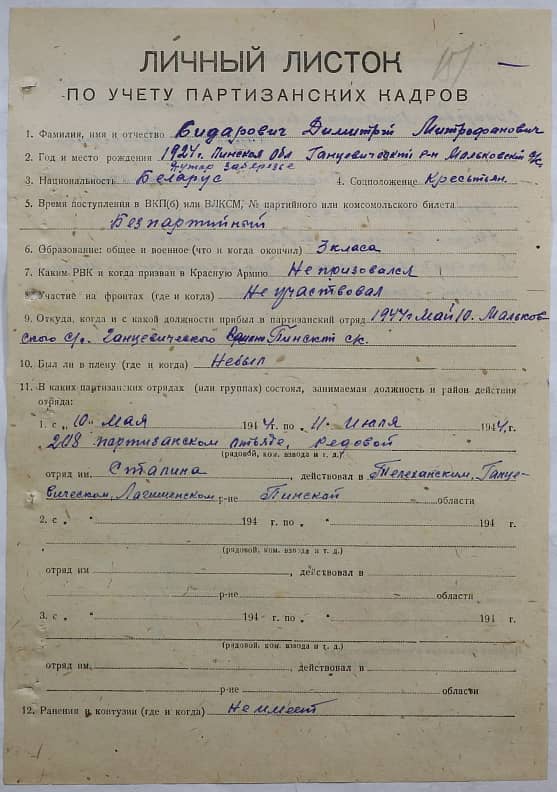 ЛИЧНЫЙ ЛИСТОК
ПО УЧЕТУ ПАРТИЗАНСКИХ КАДРОВ
1. Фамилия, имя и отчество Сидарович Димитрий Митрофанович
2. Год и место рождения 1927г. Пинская Обл Ганцевический р-н Мальковский с/с
хутор Заберезье
3. Национальность Беларус 4. Соцположение Крестьян.
5. Время поступления в ВКП(б) или ВЛКСМ, № партийного или комсомольского билета
Безпартийный
6. Образование: общее и военное (что и когда окончил) 3 класа
7. Каким РВК и когда призван в Красную Армию Не призовался
8. Участие на фронтах (где и когда) Не участвовал
9. Откуда, когда и с какой должности прибыл в партизанский отряд 1944г Май 10. Мальков
ского с/с. Ганцевического Пинской
10. Был ли в плену (где и когда) Небыл
11. В каких партизанских отрядах (или группах) состоял, занимаемая должность и район действия
отряда:
1. с „10" мая 1944г. по „11" Июля 1944г.
208 партизанском отьяде, редовой
(рядовой, ком. взвода и т. д.)
отряд им. Сталина, действовал в Телеханским, Ганце-
вическом, Логишенском р-не Пинской области
2. с „ " 194 г. по „ " 194 г.
(рядовой, ком. взвода и т. д.)
отряд им , действовал в
р-не области
3. с „ " 194 г. по „ " 194 г.
(рядовой, ком. взвода и т. д.)
отряд им. , действовал в
р-не области
12. Ранения и контузии (где и когда) Не имеет